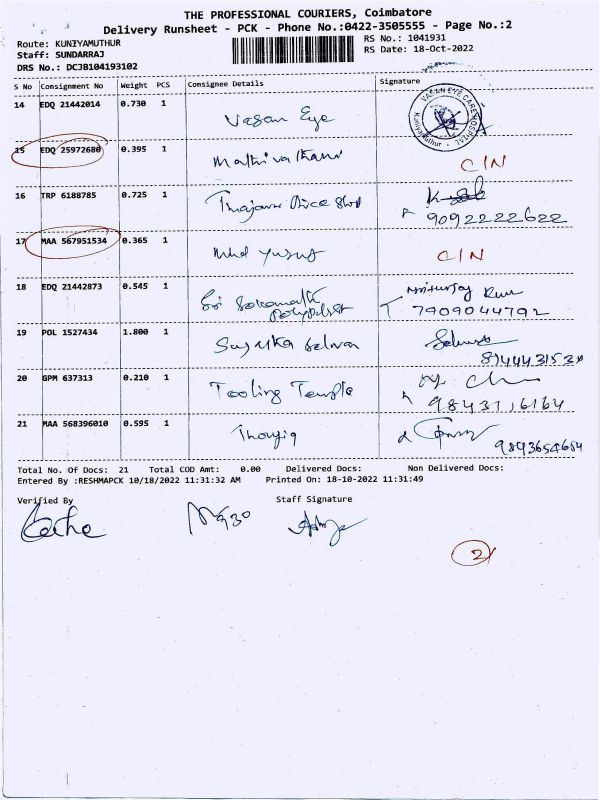 THE PROFESSIONAL COURIERS, Coimbatore
Delivery Runsheet - PCK - Phone No.:0422-3505555 - Page No.:2
Route: KUNIYAMUTHUR
RS No.: 1041931
Staff: SUNDARRAJ
RS Date: 18-Oct-2022
DRS No.: DCJB104193102
S No Consignment No Weight PCS Consignee Details Signature
14 EDQ 21442014 0.730 1 Vasan Eye
VASAN EYE CARE HOSPITAL Kuniyamuthur
15 EDQ 25972680 0.395 1 C/N
16 TRP 6188785 0.725 1
9092222622
17 MAA 567951534 0.365 1 Mhd Yusuf C/N
18 EDQ 21442873 0.545 1 Sri
7909044792
19 POL 1527434 1.800 1
20 GPM 637313 0.210 1 Tooling Temple
9843116164
21 MAA 568396010 0.595 1
9843654654
Total No. Of Docs: 21 Total COD Amt: 0.00 Delivered Docs: Non Delivered Docs:
Entered By :RESHMAPCK 10/18/2022 11:31:32 AM Printed On: 18-10-2022 11:31:49
Verified By Staff Signature
2